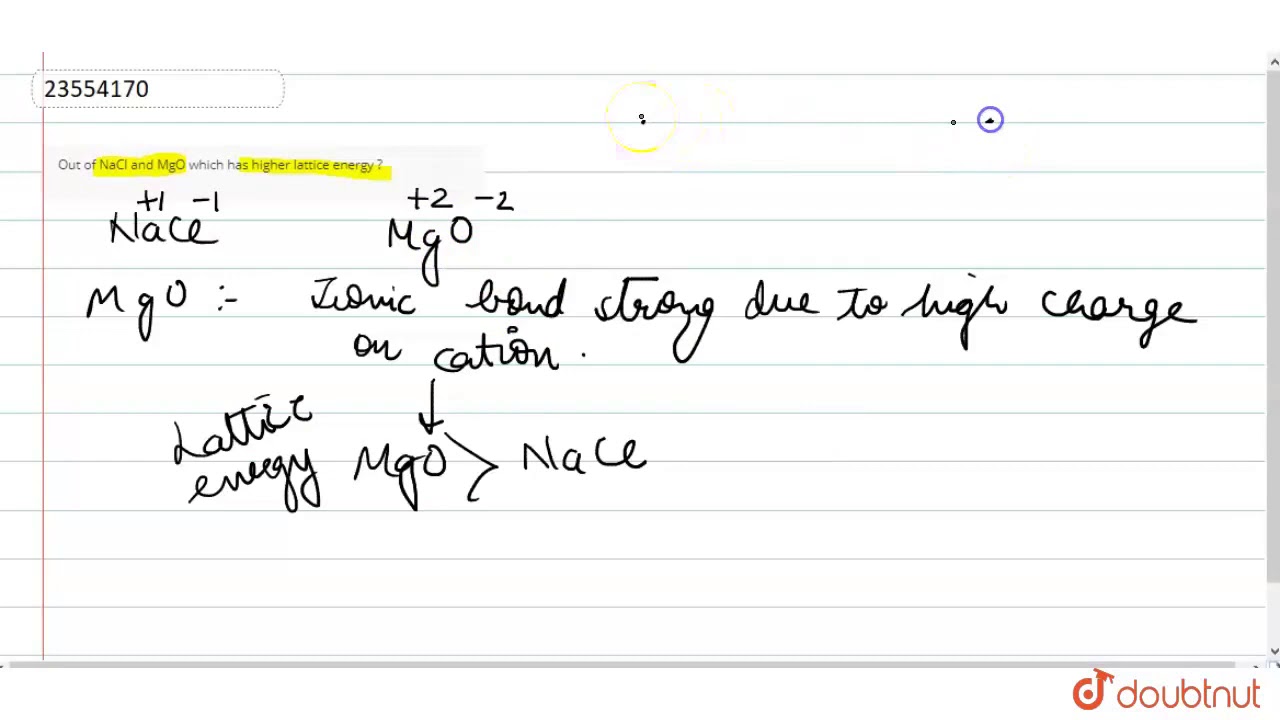 23554170
Out of NaCl and MgO which has higher lattice energy ?
+1 -1 +2 -2
NaCl MgO
MgO :- Ionic bond strong due to high charge
on cation.
Lattice
energy MgO > NaCl
doubtnut